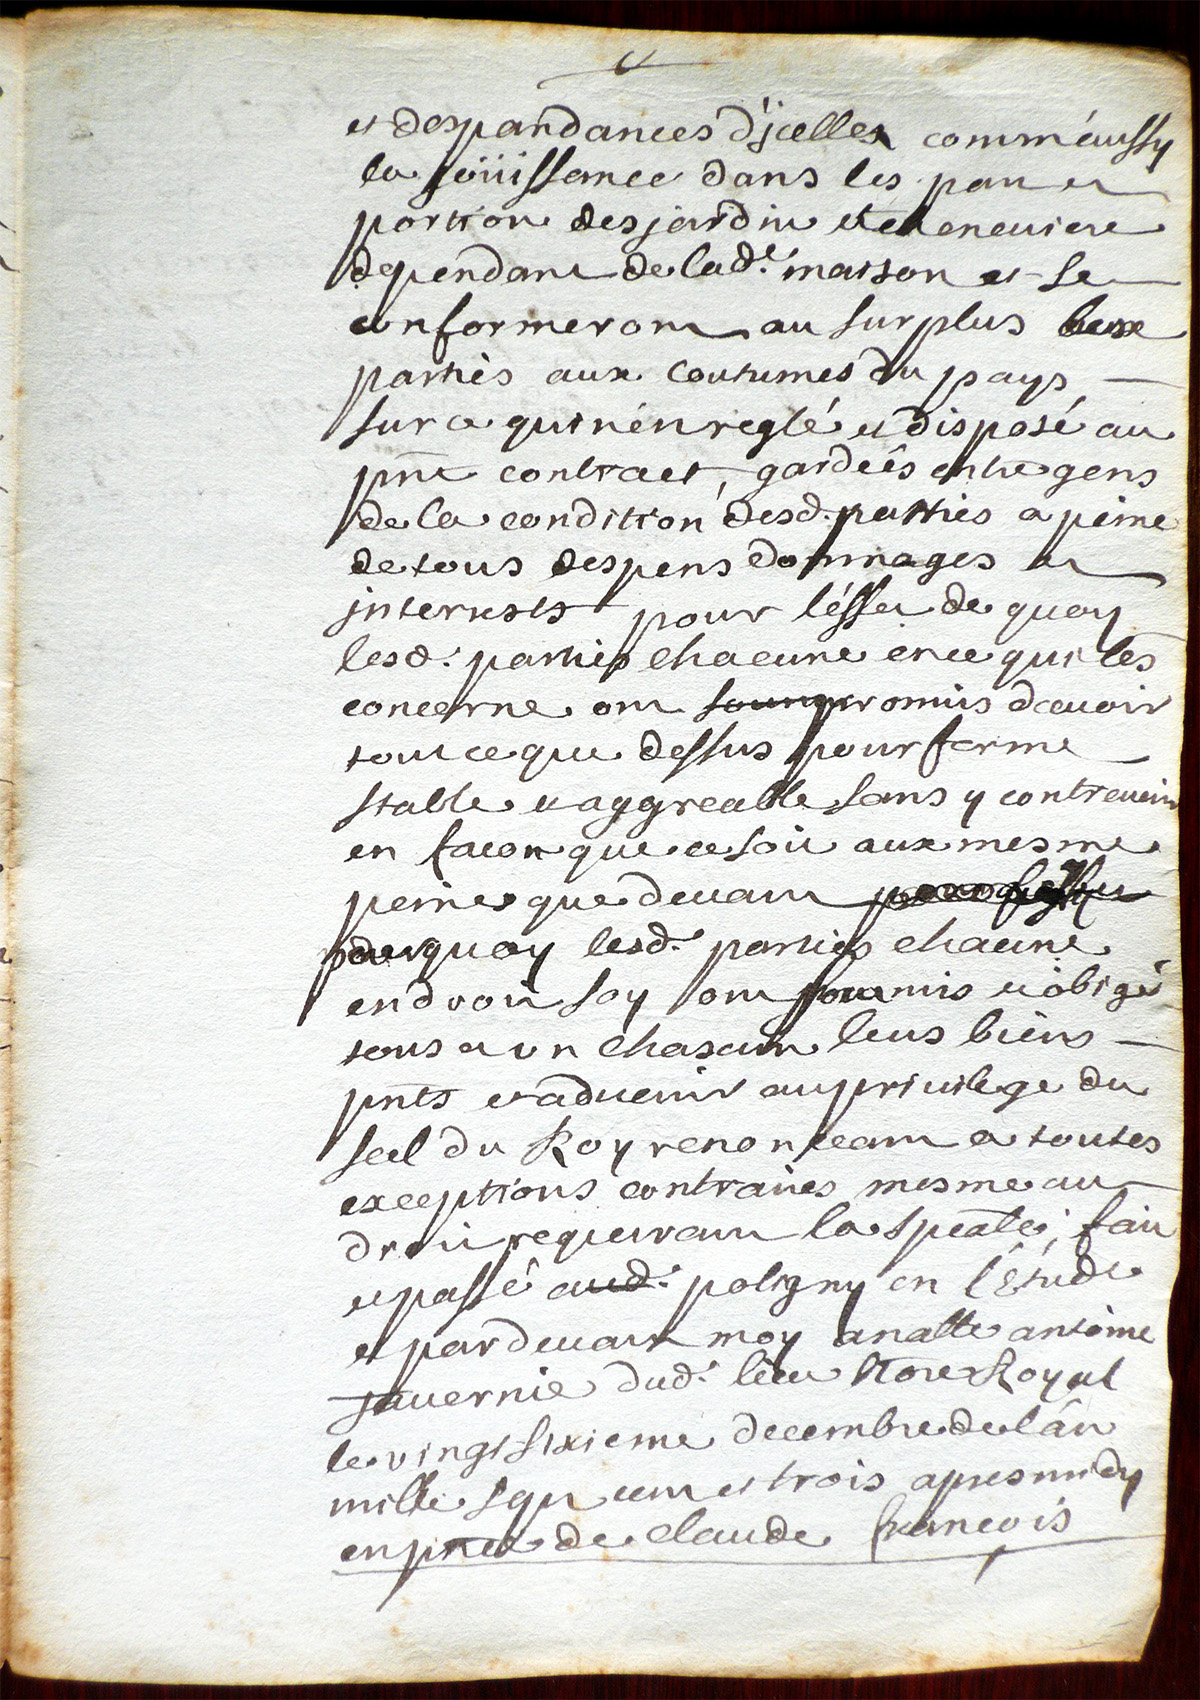 et despandances d'jcelles comm'aussy
la joüissance dans les part et
portion des jardin et cheneviere
dependant de lad.e maison et se
conformeront au surplus lesd
parties aux coutumes du pays
sur ce qui n'én reglé et disposé au
pnt contract, gardeés entre gens
de la condition desd. parties a peine
de tous despens dommages et
jnterests pour l'éffet de quoy
lesd. parties chacune en ce qui les
concerne ont promis d'avoir
tout ce que dessus pour ferme
stable et aggreable sans y contrevenir
en facon que ce soit aux mesme
peines que devant
pourquoy lesd. parties chacune
endroit soy ont soumis et obigé
tous et un chascun leurs biens
pnts et advenir au privilege du
seel du Roy renonceant a toutes
exceptions contraires mesme au
droit requerant la speâlle, fait
et passé aud. poligny en l'étude
et pardevant moy anatte antoine
javernie dud. lieu Nore Royal
le vingt sixieme decembre de l'ân
mille sept cent et trois apres midy
en pnce de claude francois